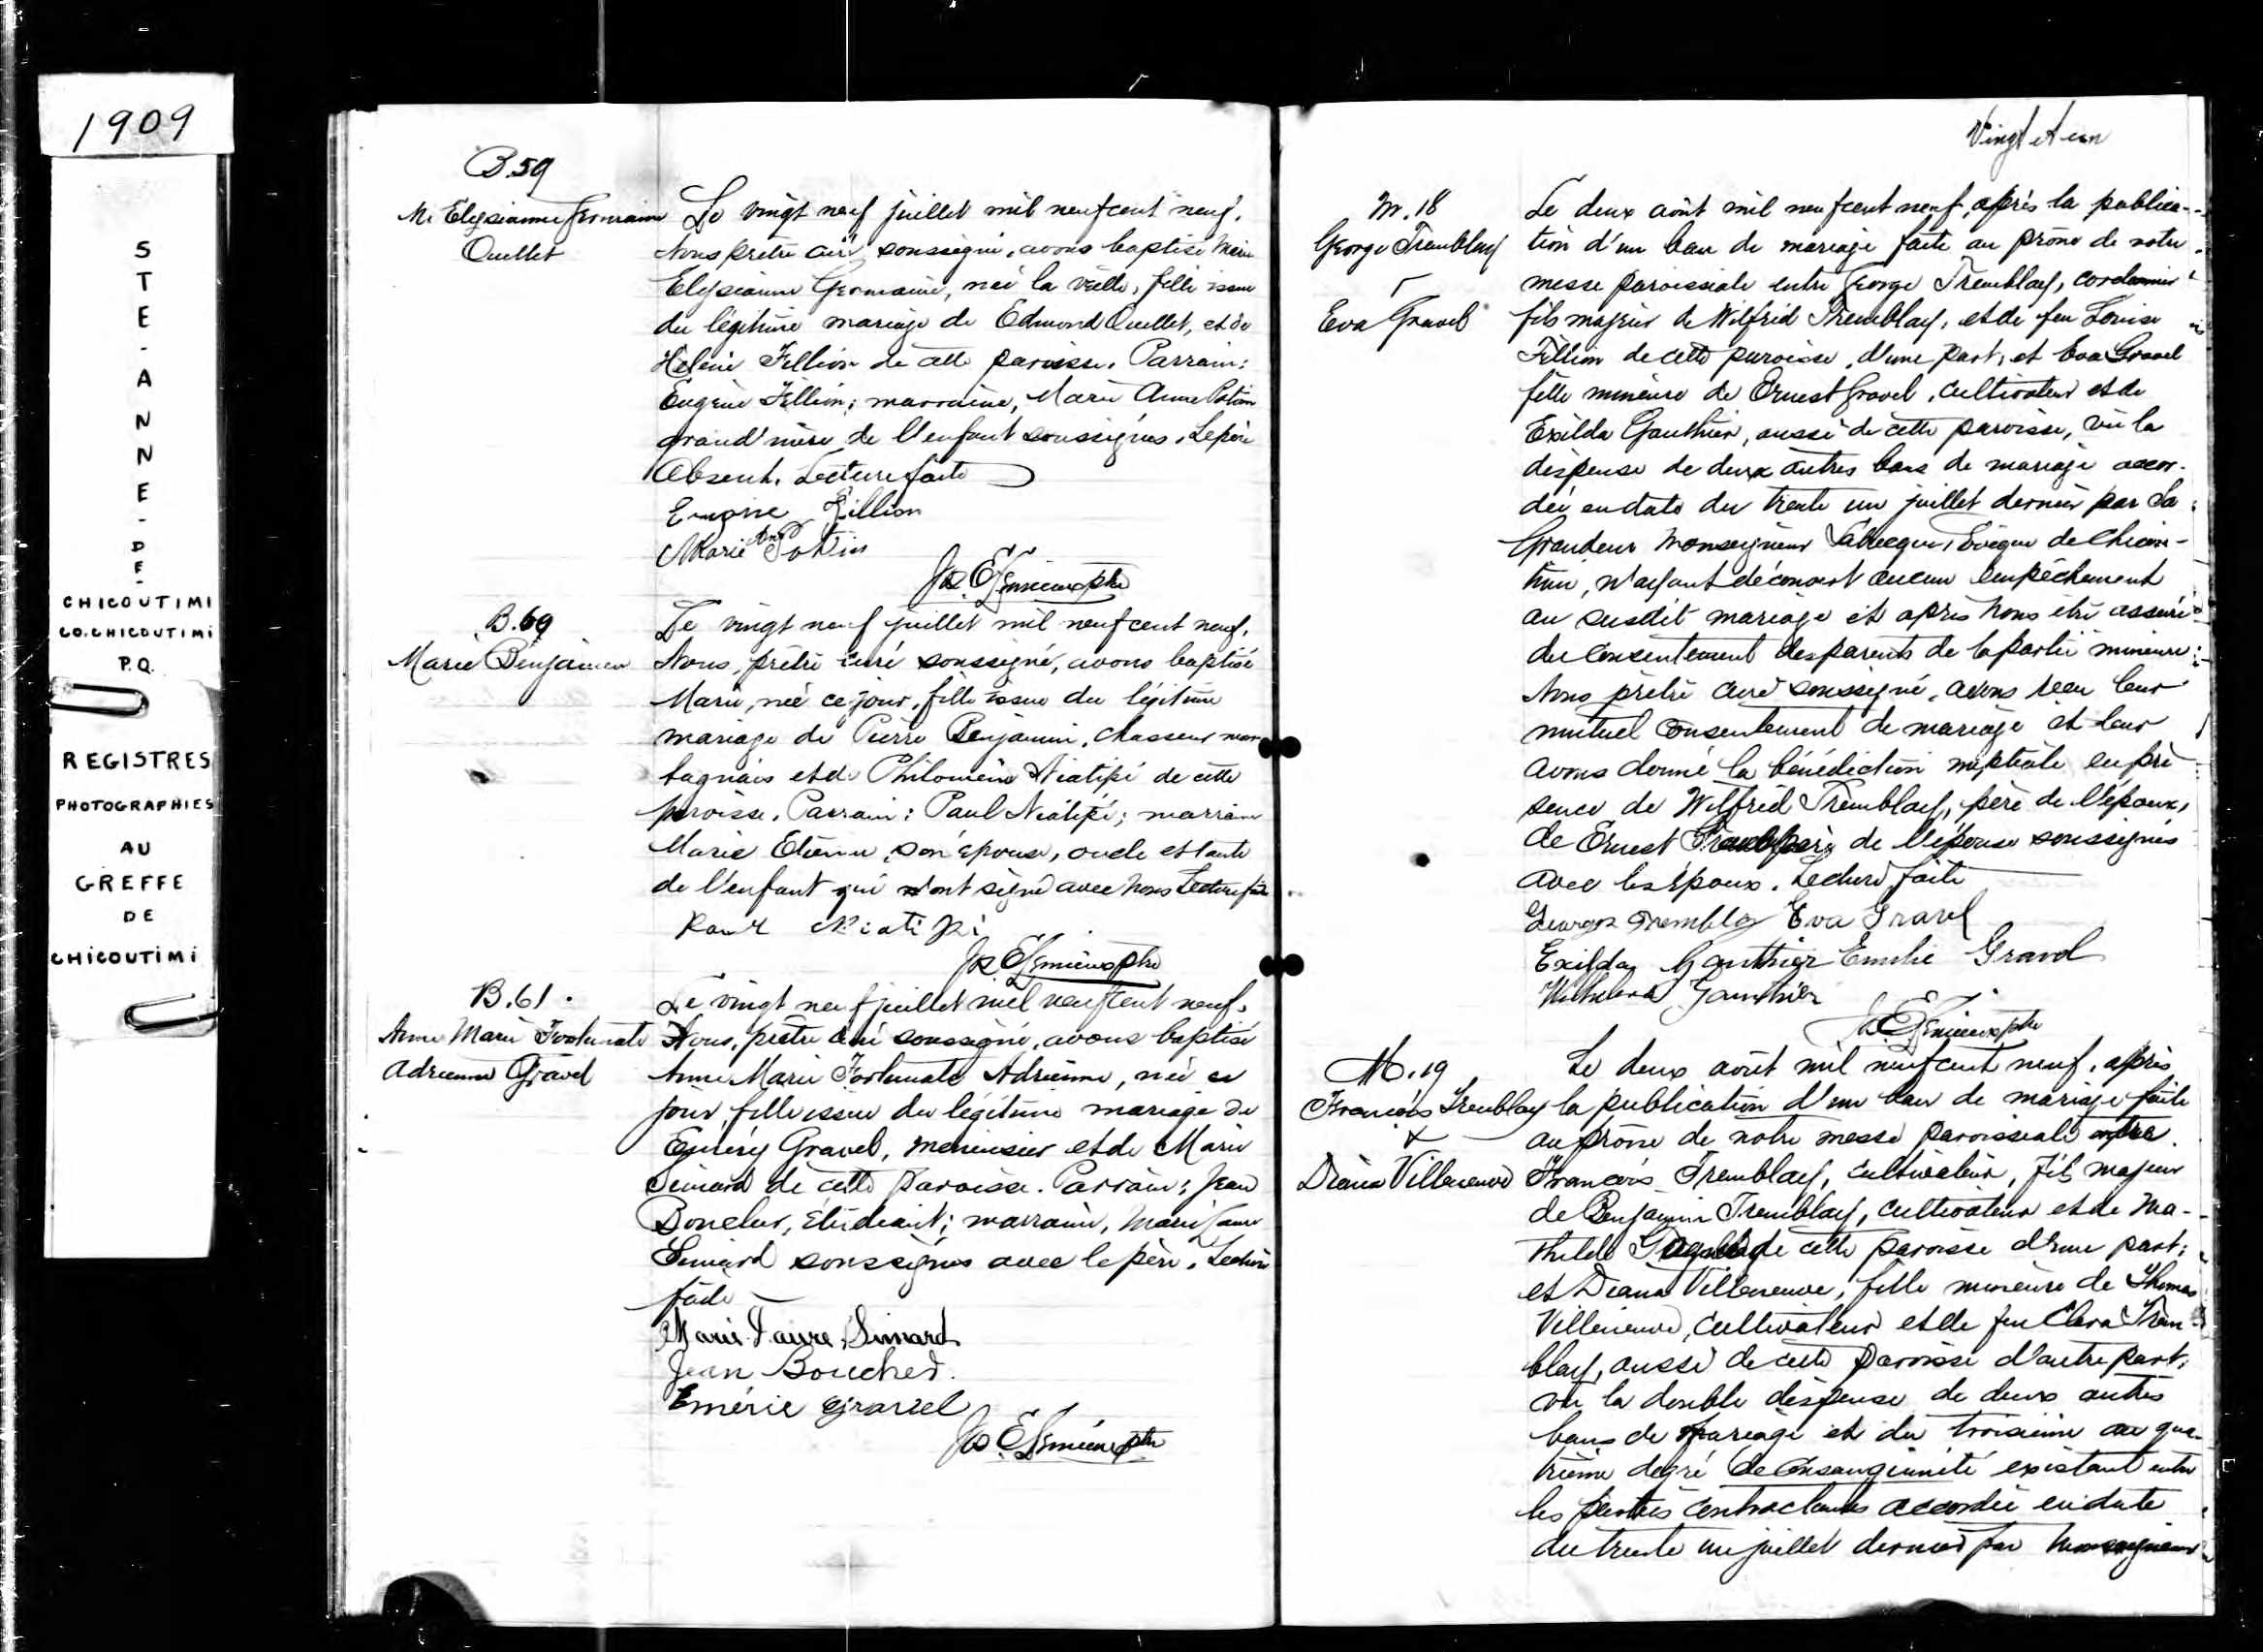 1909
STE-ANNE-DE-
CHICOUTIMI
CO. CHICOUTIMI
P.Q.
REGISTRES
PHOTOGRAPHIES
AU
GREFFE
DE
CHICOUTIMI
B.59
M. Elysianne Germaine
Ouellet
Le vingt neuf juillet mil neuf cent neuf,
Nous prêtre curé soussigné, avons baptisé Marie
Elysianne Germaine, née la veille, fille issue
du légitime mariage de Edmond Ouellet, et de
Hélène Fillion de cette paroisse. Parrain:
Eugène Fillion; marraine, Marie Anne Potvin
grand'mère de l'enfant soussignés. Le père
absent. Lecture faite
Eugène Fillion
Marie Ane Potvin
Jos. E. Lemieux ptre
B.60
Marie Benjamin
Le vingt neuf juillet mil neuf cent neuf,
Nous, prêtre curé soussigné, avons baptisé
Marie, née ce jour, fille issue du légitime
mariage de Pierre Benjamin, chasseur mon
tagnais et de Philomène Niatipi de cette
paroisse. Parrain: Paul Niatipi; marraine
Marie Etienne, son épouse, oncle et tante
de l'enfant qui n'ont signé avec nous Lecture faite
Paul Niatipi
Jos. E. Lemieux ptre
B.61.
Anne Marie Fortunate
Adrienne Gravel
Le vingt neuf juillet mil neuf cent neuf,
Nous, prêtre curé soussigné, avons baptisé
Anne Marie Fortunate Adrienne, née ce
jour, fille issue du légitime mariage de
Eméry Gravel, menuisier et de Marie
Simard de cette paroisse. Parrain: Jean
Boucher, étudiant; marraine, Marie Laure
Simard soussignés avec le père. Lecture
faite
Marie-Laure Simard
Jean Boucher.
Emérie Gravel
Jos. E. Lemieux ptre
Vingt et un
M. 18
George Tremblay
Eva Gravel
Le deux août mil neuf cent neuf, après la publica-
tion d'un ban de mariage faite au prône de notre
messe paroissiale entre George Tremblay, cordonnier
fils majeur de Wilfrid Tremblay, et de feu Louise
Fillion de cette paroisse, d'une part, et Eva Gravel
fille mineure de Ernest Gravel, cultivateur et de
Exilda Gauthier, aussi de cette paroisse, vu la
dispense de deux autres bans de mariage accor-
dée en date du trente un juillet dernier par Sa
Grandeur Monseigneur Labrecque, Evêque de Chicou-
timi, n'ayant découvert aucun empêchement
au susdit mariage et après nous être assuré
du consentement des parents de la partie mineure:
Nous prêtre curé soussigné, avons reçu leur
mutuel consentement de mariage et leur
avons donné la bénédiction nuptiale en pré
sence de Wilfrid Tremblay, père de l'époux,
de Ernest Gravel père de l'épouse soussignés
avec les époux. Lecture faite
Georges Tremblay Eva Gravel
Exilda Gauthier Emelie Gravel
Gauthier
Jos. E. Lemieux ptre
M. 19
François Tremblay
&
Diana Villeneuve
Le deux août mil neuf cent neuf, après
la publication d'un ban de mariage faite
au prône de notre messe paroissiale entre
François Tremblay, cultivateur, fils majeur
de Benjamin Tremblay, cultivateur et de Ma-
thilde Gagné de cette paroisse d'une part;
et Diana Villeneuve, fille mineure de Thomas
Villeneuve, cultivateur et de feu Clara Trem-
blay, aussi de cette paroisse d'autre part,
vu la double dispense de deux autres
bans de mariage et du troisième au qua-
trième degré de consanguinité existant entre
les parties contractantes accordée en date
du trente un juillet dernier par Monseigneur